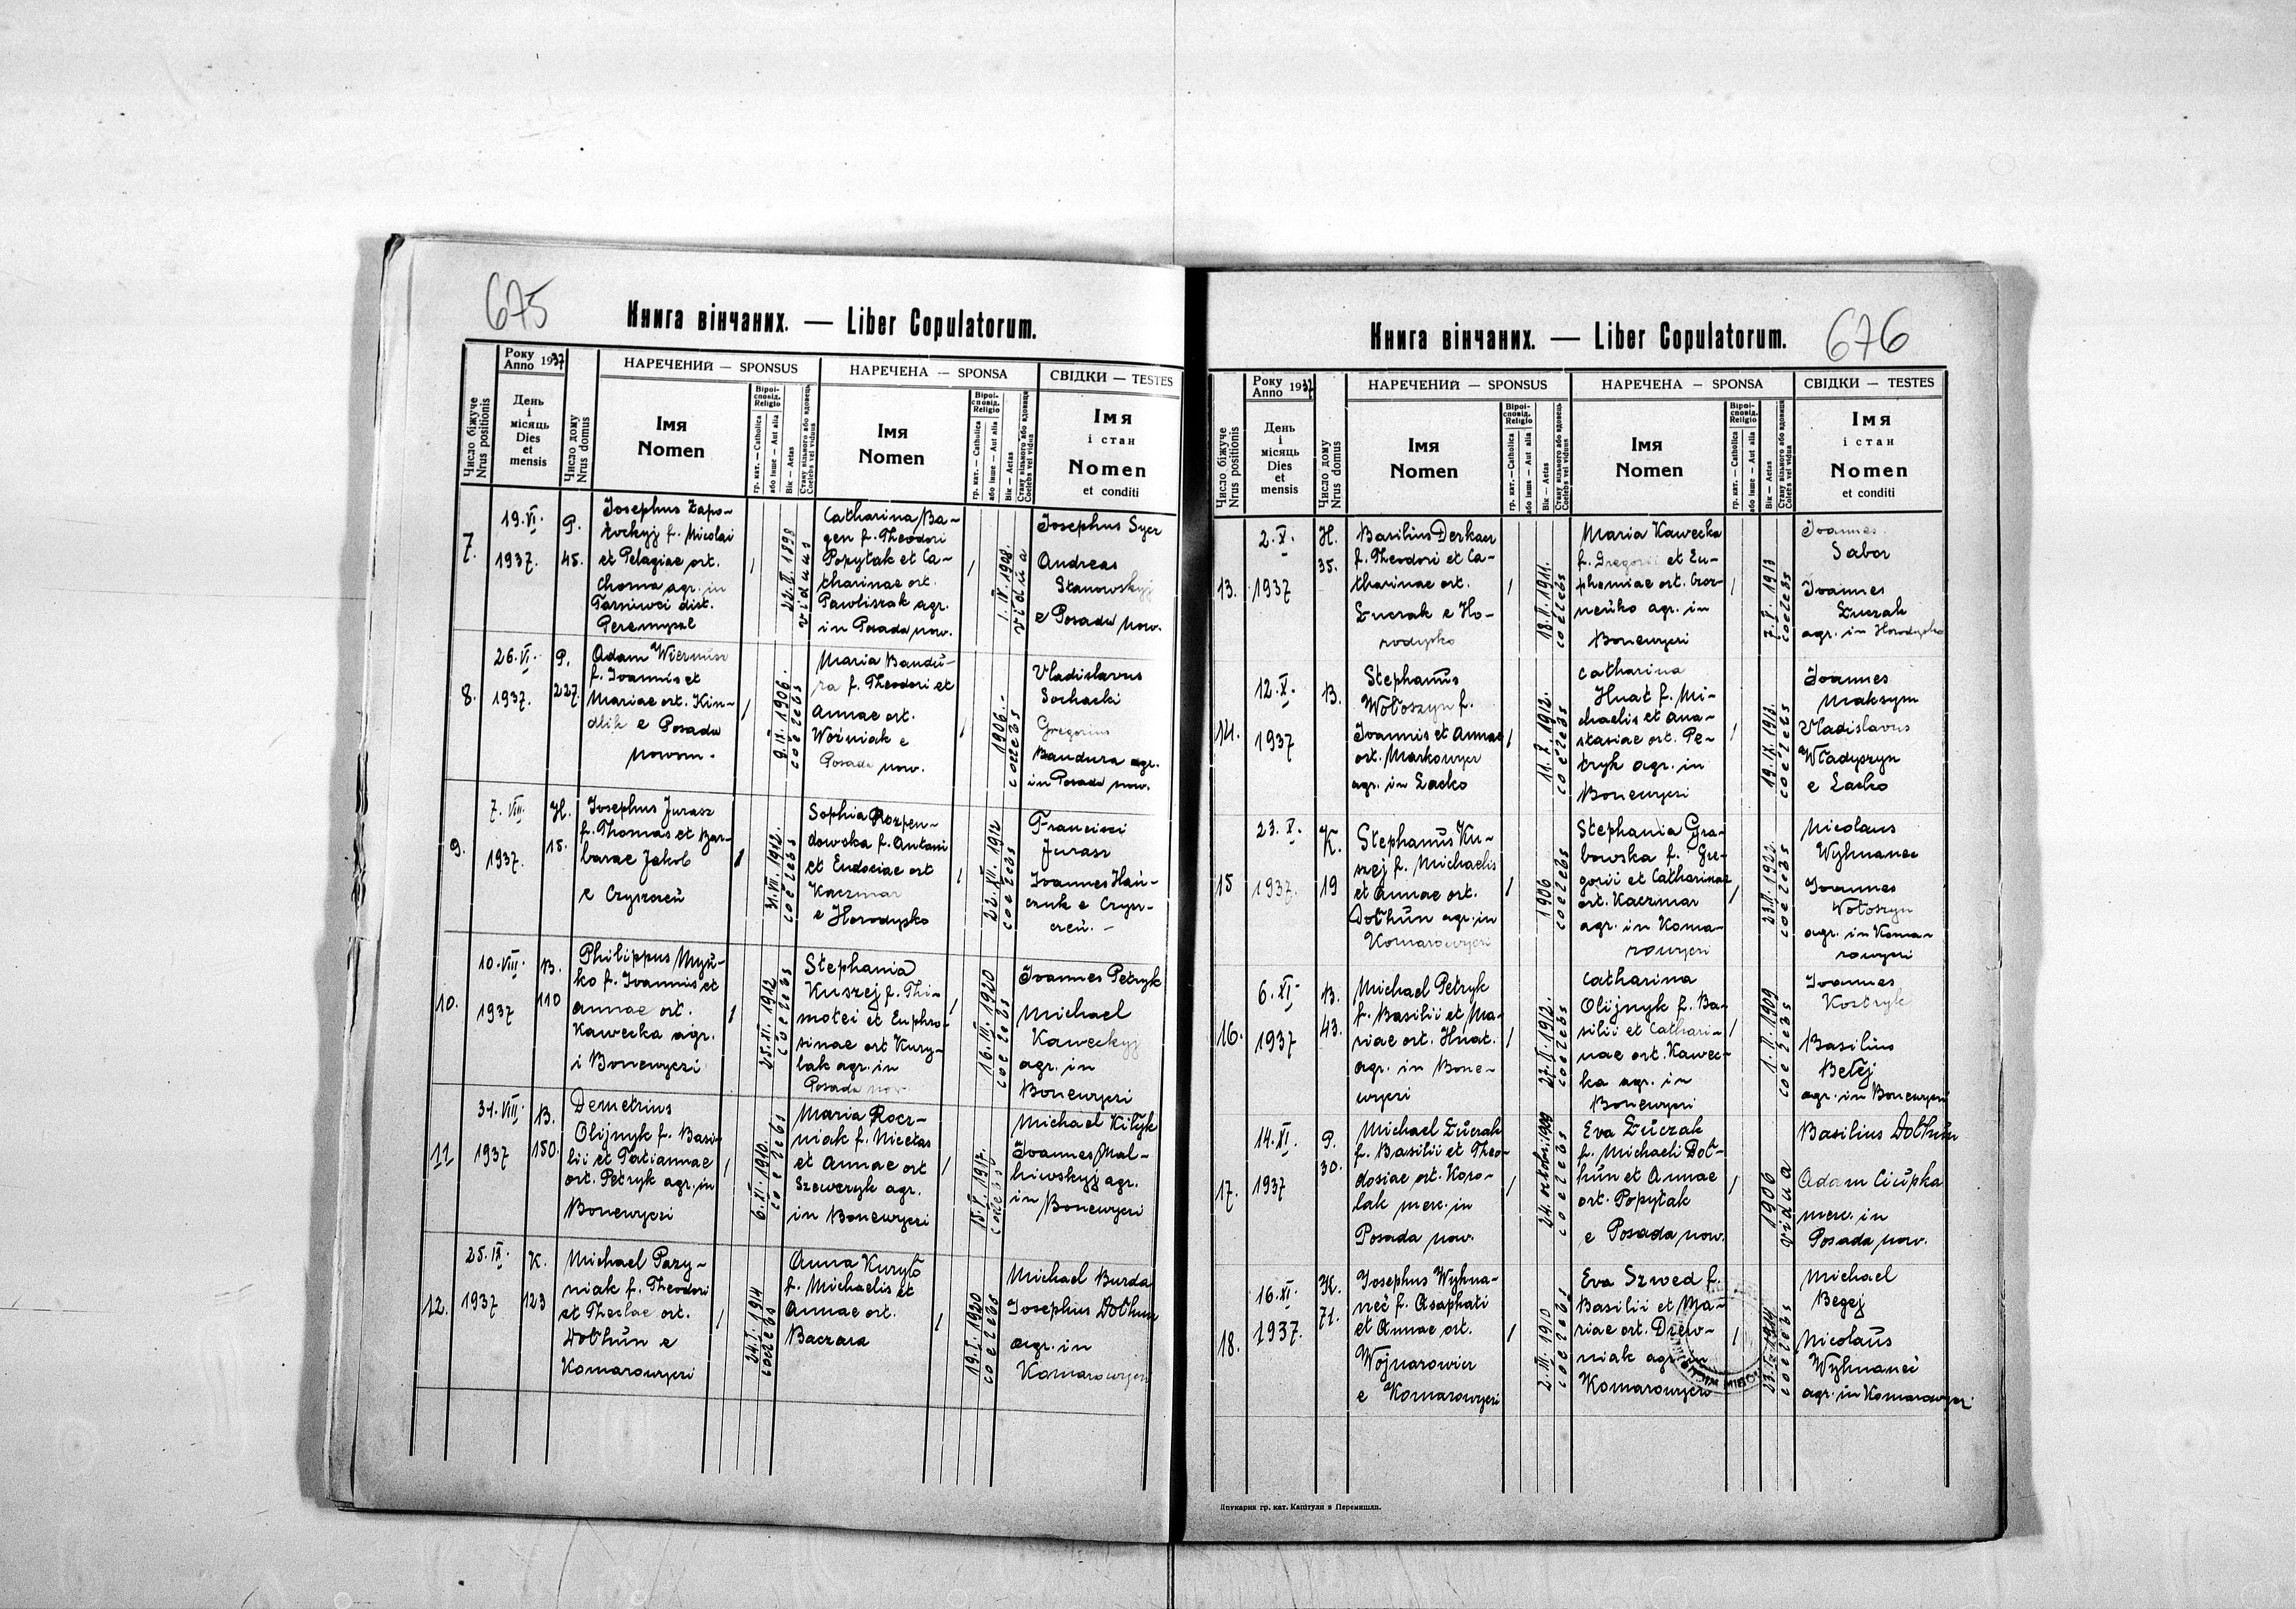 675
Книга вінчаних. — Liber Copulatorum.
Число біжуче
Nrus positionis
Року
Anno 1937
День
і
місяць
Dies
et
mensis
Число дому
Nrus domus
НАРЕЧЕНИЙ — SPONSUS
Імя
Nomen
Віроі-
сповід.
Religio
гр. кат. — Catholica
або інше — Aut alia
Вік — Aetas
Стану вільного або вдовець
Coelebs vel viduus
НАРЕЧЕНА — SPONSA
Імя
Nomen
Віроі-
сповід.
Religio
гр. кат. — Catholica
або інше — Aut alia
Вік — Aetas
Стану вільного або вдовиця
Coelebs vel vidua
СВІДКИ — TESTES
Імя
і стан
Nomen
et conditi
7.
19.VI.
1937.
P.
45.
Josephus Zapo-
f. Nicolai
et Pelagiae ort.
Choma agr. in
dist.
Peremysl
22.II.1898
viduus
Catharina Ba-
gen f. Theodori
Popytak et Ca-
tharinae ort.
Pawliszak agr.
in Posada now.
1.IV.1908.
vidua
Josephus Sycz
Andreas
Stanowskyj
e Posada now.
8.
26.VI.
1937.
P.
227.
Adam
f. Joannis et
Mariae ort. Kin-
dlik e Posada
nowom.
9.II.1906.
coelebs
Maria Bandu-
ra f. Theodori et
Annae ort.
Woźniak e
Posada now.
1906.-
coelebs
Vladislavus
Sochacki
Gregorius
Bandura agr.
in Posada now.
9.
7.VIII.
1937.
H.
15.
Josephus Jurasz
f. Thomas et Bar-
barae Jakob
e Czyszczeń
31.VII.1912.
coelebs
Sophia Rozpen-
dowska f. Antoni
et Eudociae ort
Kaczmar
e Horodysko
22.XII.1912
coelebs
Francisci
Jurasz
Joannes Hań-
czuk e Czysz-
czeń.-
10.
10.VIII.
1937
B.
110
Philippus Myń-
ko f. Joannis et
Annae ort.
Kawecka agr.
i Bonewyczi
25.XI.1912
coelebs
Stephania
Kuszej f. Thi-
motei et Euphro-
sinae ort Kury-
lak agr. in
Posada now.
16.III.1920
coelebs
Joannes Petryk
Michael
Kaweckyj
agr. in
Bonewyczi
11
31.VIII.
1937
B.
150.
Demetrius
Olijnyk f. Basi-
lii et Tatiannae
ort. Petryk agr. in
Bonewyczi
6.XI.1910.
coelebs
Maria Rocz-
niak f. Nicetas
et Annae ort
Szewczyk agr.
in Bonewyczi
15.V.1917.
coelebs
Michael Kityk
Joannes Mal-
hiwskyj agr.
in Bonewyczi
12.
25.IX.
1937
K.
123
Michael Pazy-
niak f. Theodori
et Theclae ort.
Dołhun e
Komarowyczi
24.I.1914
coelebs
Anna Kuryło
f. Michaelis et
Annae ort.
Baczara
19.I.1920
coelebs
Michael Burda
Josephus Dołhun
agr. in
Komarowyczi
676
Книга вінчаних. — Liber Copulatorum.
Число біжуче
Nrus positionis
Року
Anno 1937
День
і
місяць
Dies
et
mensis
Число дому
Nrus domus
НАРЕЧЕНИЙ — SPONSUS
Імя
Nomen
Віроі-
сповід.
Religio
гр. кат. — Catholica
або інше — Aut alia
Вік — Aetas
Стану вільного або вдовець
Coelebs vel viduus
НАРЕЧЕНА — SPONSA
Імя
Nomen
Віроі-
сповід.
Religio
гр. кат. — Catholica
або інше — Aut alia
Вік — Aetas
Стану вільного або вдовиця
Coelebs vel vidua
СВІДКИ — TESTES
Імя
і стан
Nomen
et conditi
13.
2.X.
1937
H.
35.
Basilius Derkacz
f. Theodori et Ca-
tharinae ort.
Łuczak e Ho-
rodysko
18.II.1911.
coelebs
Maria Kawecka
f. Gregorii et Eu-
phemiae ort. Czor-
neńko agr. in
Bonewyczi
7.V.1913
coelebs
Joannes
Sabor
Joannes
Łuczak
agr. in Horodysko
14.
12.X.
1937
B.
Stephanus
Wołoszyn f.
Joannis et Annae
ort. Markowycz
agr. in Lacko
11.X.1912.
coelebs
Catharina
Hnat f. Mi-
chaelis et Ana-
stasiae ort. Pe-
tryk agr. in
Bonewyczi
19.IX.1913.
coelebs
Joannes
Maksym
Vladislavus
Władyczyn
e Lacko
15
23.X.
1937.
K.
19
Stephanus Ku-
szej f. Michaelis
et Annae ort.
Dołhun agr. in
Komarowyczi
1906
coelebs
Stephania Gra-
bowska f. Gre-
gorii et Catharinae
ort. Kaczmar
agr. in Koma-
rowyczi
23.II.1922.
coelebs
Nicolaus
Wyhnanec
Joannes
Wołoszyn
agr. in Koma-
rowyczi
16.
6.XI.
1937
B.
43.
Michael Petryk
f. Basilii et Ma-
riae ort. Hnat.
agr. in Bone-
wyczi
27.II.1912.
coelebs
Catharina
Olijnyk f. Ba-
silii et Cathari-
nae ort. Kawec-
ka agr. in
Bonewyczi
1.II.1909
coelebs
Joannes
Kostryk
Basilius
Betej
agr. in Bonewyczi
17.
14.XI.
1937
P.
30.
Michael Łuczak
f. Basilii et Theo-
dosiae ort. Koro-
lak merc. in
Posada now.
24. oktobr. 1909
coelebs
Eva Łuczak
f. Michaeli Doł-
hun et Annae
ort. Popytak
e Posada now.
1906
vidua
Basilius Dołhun
Adam Ciupka
merc. in
Posada now.
18.
16.XI.
1937.
K.
71.
Josephus Wyhna-
neć f. Asaphati
et Annae ort.
Wojnarowicz
e Komarowyczi
2.III.1910
coelebs
Eva Szwed f.
Basilii et Ma-
riae ort. Drew-
niak agr. in
Komarowyczi
coelebs
Michael
Begej
Nicolaus
Wyhnaneć
agr. in Komarowyczi
Друкарня гр. кат. Капітули в Перемишлі.